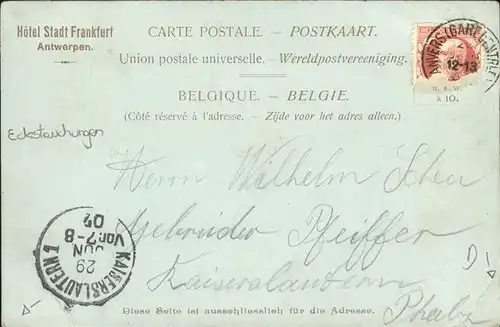 Hôtel Stadt Frankfurt
Antwerpen.
CARTE POSTALE. – POSTKAART.
Union postale universelle. – Wereldpostvereeniging.
BELGIQUE. – BELGIE.
(Côté réservé à l'adresse. – Zijde voor het adres alleen.)
ANVERS (GARE
12-13
à 10.
Eckstauchungen
Herrn Wilhelm
Gebrüder Pfeiffer
Kaiserslautern
KAISERSLAUTERN 1
29
JUN
Vor. 7-8
04
D
Diese Seite ist ausschliesslich für die Adresse.